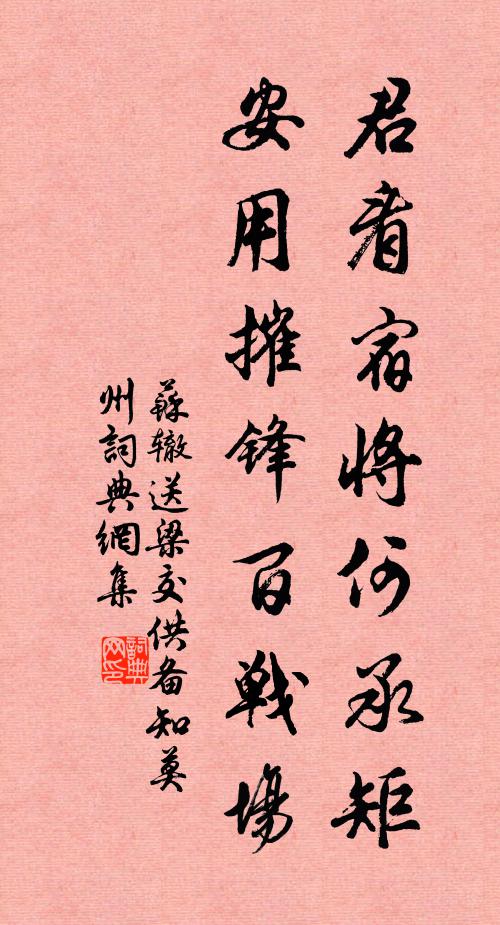 君看宿將何承矩
安用摧锋百戰場
蘇辙送梁交供备知莫
州詞典網集
詞典
网印